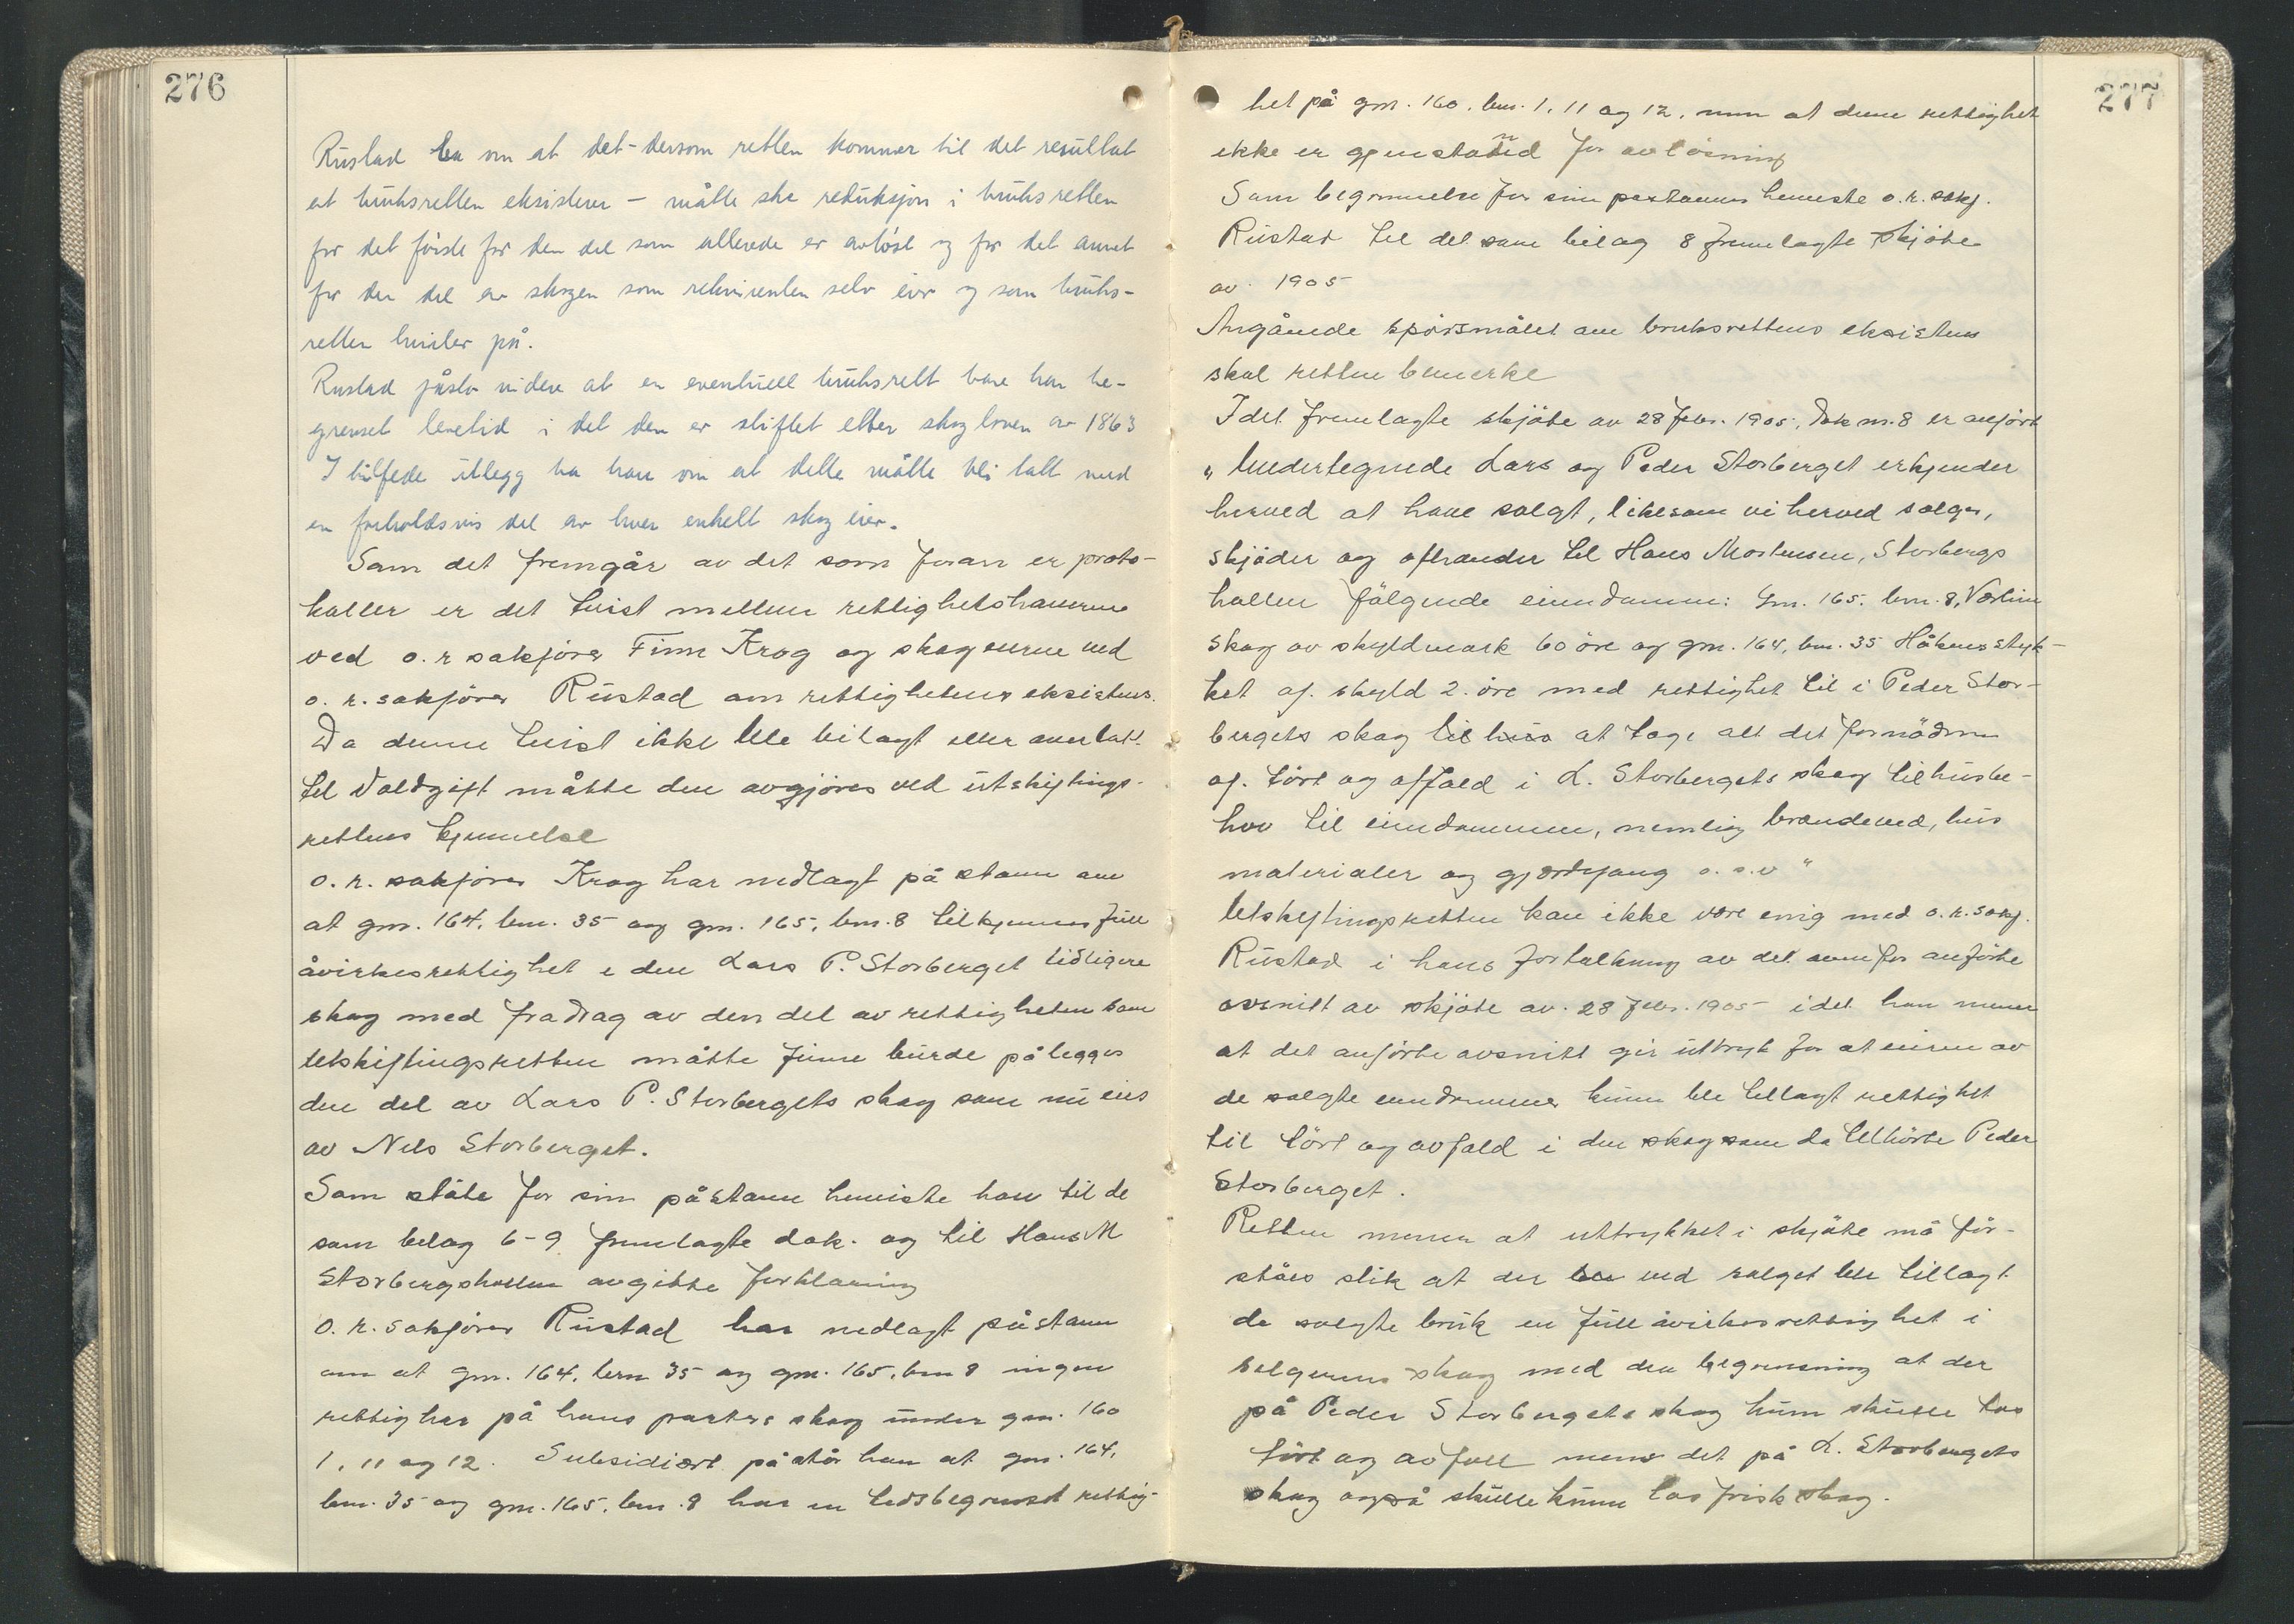 276
Rustad ba om at det - dersom retten kommer til det resultat
at bruksretten eksisterer - måtte skje reduksjon i bruksretten
for det förste for den del som allerede er avlöst og for det annet
for den del av skogen som rekvirenten selv eier og som bruks-
retten hviler på.
Rustad påsto videre at en eventuell bruksrett bare har be-
grenset levetid i det den er stiftet etter skogloven av 1863
I tilfelle utlegg ba han om at dette måtte bli tatt med
en forholdsvis del av hver enkelt skog eier.
Som det fremgår av det som foran er proto-
kollert er det tvist mellem rettighetshaverne
ved o.r sakförer Finn Krog og skogeierne ved
o.r. sakförer Rustad om rettighetens eksistens.
Da denne tvist ikke ble bilagt eller overlatt
til voldgift måtte den avgjöres ved utskiftings-
rettens kjennelse
o.r. sakförer Krog har nedlagt påstann om
at gnr. 164, bnr. 35 og gnr. 165, bnr. 8 tilkjennes full
åvirkesrettighet i den Lars P. Storberget tidligere
skog med fradrag av den del av rettigheten som
utskiftingsretten måtte finne burde pålegges
den del av Lars P. Storbergets skog som nu eies
av Nils Storberget.
Som stöte for sin påstann henviste han til de
som bilag 6-9 fremlagte dok. og til Hans M
Storbergshollen avgitte forklaring
O.r. sakförer Rustad har nedlagt påstann
om at gnr. 164, bnr 35 og gnr. 165, bnr 8 ingen
rettighet på hans parters skog under gnr. 160
1, 11 og 12. Subsidiært påstår han at gnr. 164,
bnr. 35 og gnr. 165, bnr. 8 har en tidsbegrenset rettig-
277
het på gnr. 160, bnr. 1, 11 og 12, men at denne rettighet
ikke er gjenstand for avlösning
Som begrunnelse for sine påstanner henviste o.r. sakf.
Rustad til det som bilag 8 fremlagte skjöte
av 1905
Angående spörsmålet om bruksrettens eksistens
skal retten bemerke
I det fremlagte skjöte av 28 febr. 1905, dok nr. 8 er anfört
"Undertegnede Lars og Peder Storberget erkjender
herved at have solgt, likesom vi herved sælger,
skjöder og afhænder til Hans Mortensen, Storbergs
hollen fölgende eiendomme: Gnr. 165. bnr. 8, Vorlien
skog av skyldmark 60 öre og gnr. 164, bnr. 35 Håkensstyk-
ket af skyld 2. öre med rettighet til i Peder Stor-
bergets skog til hus at tage alt det fornödne
af tört og affald i L. Storbergets skog til husbe-
hov til eiendommene, nemlig brændeved, hus
materialer og gjerdefang o.s.v"
Utskiftingsretten kan ikke være enig med o.r. sakf.
Rustad i hans fortolkning av det ovenfor anförte
avsnitt av skjöte av 28 febr. 1905 idet han mener
at det anförte avsnitt gir uttryk for at eieren av
de solgte eiendommer kunn ble tillagt rettighet
til tört og avfald i den skog som da tilhörte Peder
Storberget.
Retten mener at uttrykket i skjöte må for-
ståes slik at der ble ved salget ble tillagt
de solgte bruk en full åvirkesrettighet i
selgernes skog med den begrensning at der
på Peder Storbergets skog kunn skulle tas
tört og avfall mens det på L. Storbergets
skog også skulle kunn tas frisk skog.